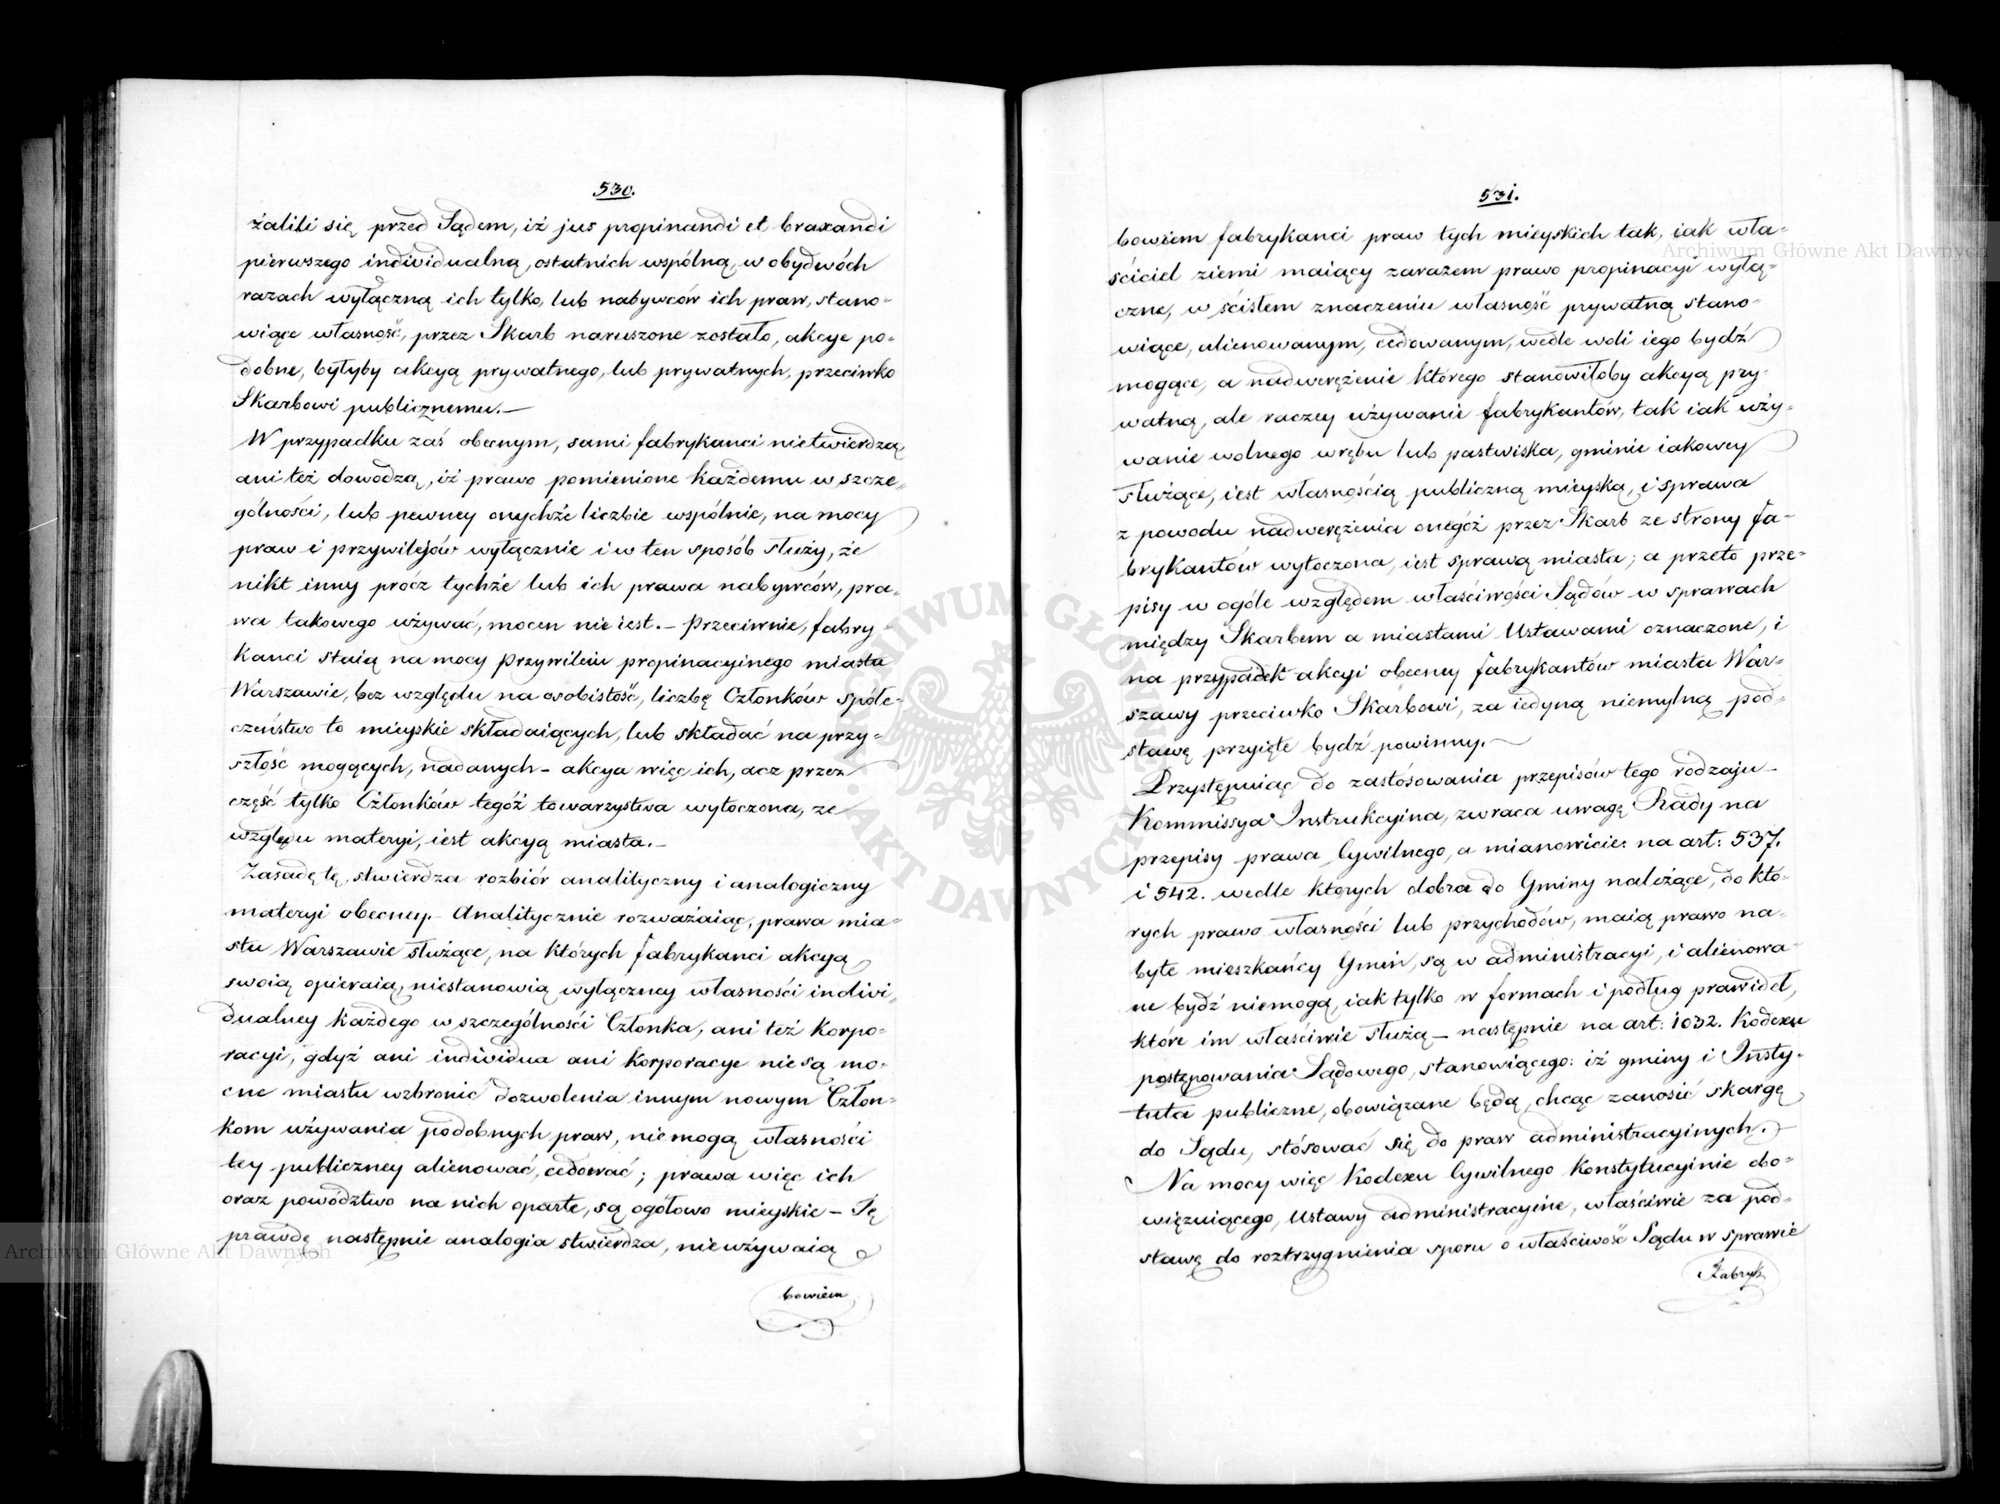 530.
żalili się przed Sądem, iż jus propinandi et braxandi
pierwszego individualną, ostatnich wspólną, w obydwóch
razach wyłączną ich tylko, lub nabywców ich praw, stano-
wiące własność, przez Skarb naruszone zostało, akcye po-
dobne, byłyby akcyą prywatnego, lub prywatnych, przeciwko
Skarbowi publicznemu.—
W przypadku zaś obecnym, sami fabrykanci nietwierdzą
ani też dowodzą, iż prawo pomienione każdemu w szcze-
gólności, lub pewney onychże liczbie wspólnie, na mocy
praw i przywilejów wyłącznie i w ten sposób służy, że
nikt inny prócz tychże lub ich prawa nabywców, pra-
wa takowego używać, mocen nie iest.— Przeciwnie, fabry-
kanci staią na mocy Przywileiu propinacyjnego miastu
Warszawie, bez względu na osobistość, liczbę Członków społe-
czeństwo to mieyskie składaiących, lub składać na przy-
szłość mogących, nadanych — akcya więc ich, acz przez
część tylko Członków tegóż towarzystwa wytoczona, ze
względu materyi, iest akcyą miasta.—
Zasadę tę, stwierdza rozbiór analityczny i analogiczny
materyi obecney.— Analitycznie rozważaiąc, prawa mia-
stu Warszawie służące, na których fabrykanci akcyą
swoią opieraią, niestanowią wyłączney własności indivi-
dualney każdego w szczególności Członka, ani też Korpo-
racyi, gdyż ani individua ani Korporacye nie są mo-
cne miastu wzbronić dozwolenia innym nowym Człon-
kom używania podobnych praw, nie mogą własności
tey publiczney alienować, cedować; prawa więc ich
oraz powództwo na nich oparte, są ogółowo mieyskie — Tę
prawdę następnie analogia stwierdza, nie używaią
bowiem
531.
bowiem fabrykanci praw tych mieyskich tak, iak wła-
ściciel ziemi maiący zarazem prawo propinacyi wyłą-
czne, w ścisłem znaczeniu własność prywatną stano-
wiące, alienowanym, cedowanym, wedle woli iego bydź
mogące, a nadwerężenie którego stanowiłoby akcyą pry-
watną, ale raczey używanie fabrykantów, tak iak uży-
wanie wolnego wrębu lub pastwiska, gminie iakowey
służące, iest własnością publiczną mieyską, i sprawa
z powodu nadwerężenia onegóż przez Skarb ze strony fa-
brykantów wytoczona, iest sprawą miasta; a przeto prze-
pisy w ogóle względem właściwości Sądów w sprawach
między Skarbem a miastami Ustawami oznaczone, i
na przypadek akcyi obecney fabrykantów miasta War-
szawy przeciwko Skarbowi, za iedyną niemylną pod-
stawę przyięte bydź powinny.—
Przystępuiąc do zastósowania przepisów tego rodzaju —
Kommissya Instrukcyina, zwraca uwagę Rady na
przepisy prawa Cywilnego, a mianowicie: na art: 537.
i 542. wedle których dobra do Gminy należące, do któ-
rych prawo własności lub przychodów, maią prawo na-
byłe mieszkańcy Gmin, są w administracyi, i alienowa-
ne bydź niemogą, iak tylko w formach i podług prawideł,
które im właściwie służą — następnie na art: 1032. Kodexu
postępowania Sądowego, stanowiącego: iż gminy i Insty-
tuta publiczne, obowiązane będą, chcąc zanosić skargę
do Sądu, stósować się do praw administracyinych.—
Na mocy więc Kodexu Cywilnego Konstytucyinie obo-
więzuiącego, Ustawy administracyine, właściwie za pod-
stawę do roztrzygnienia sporu o właściwość Sądu w sprawie
Fabryk